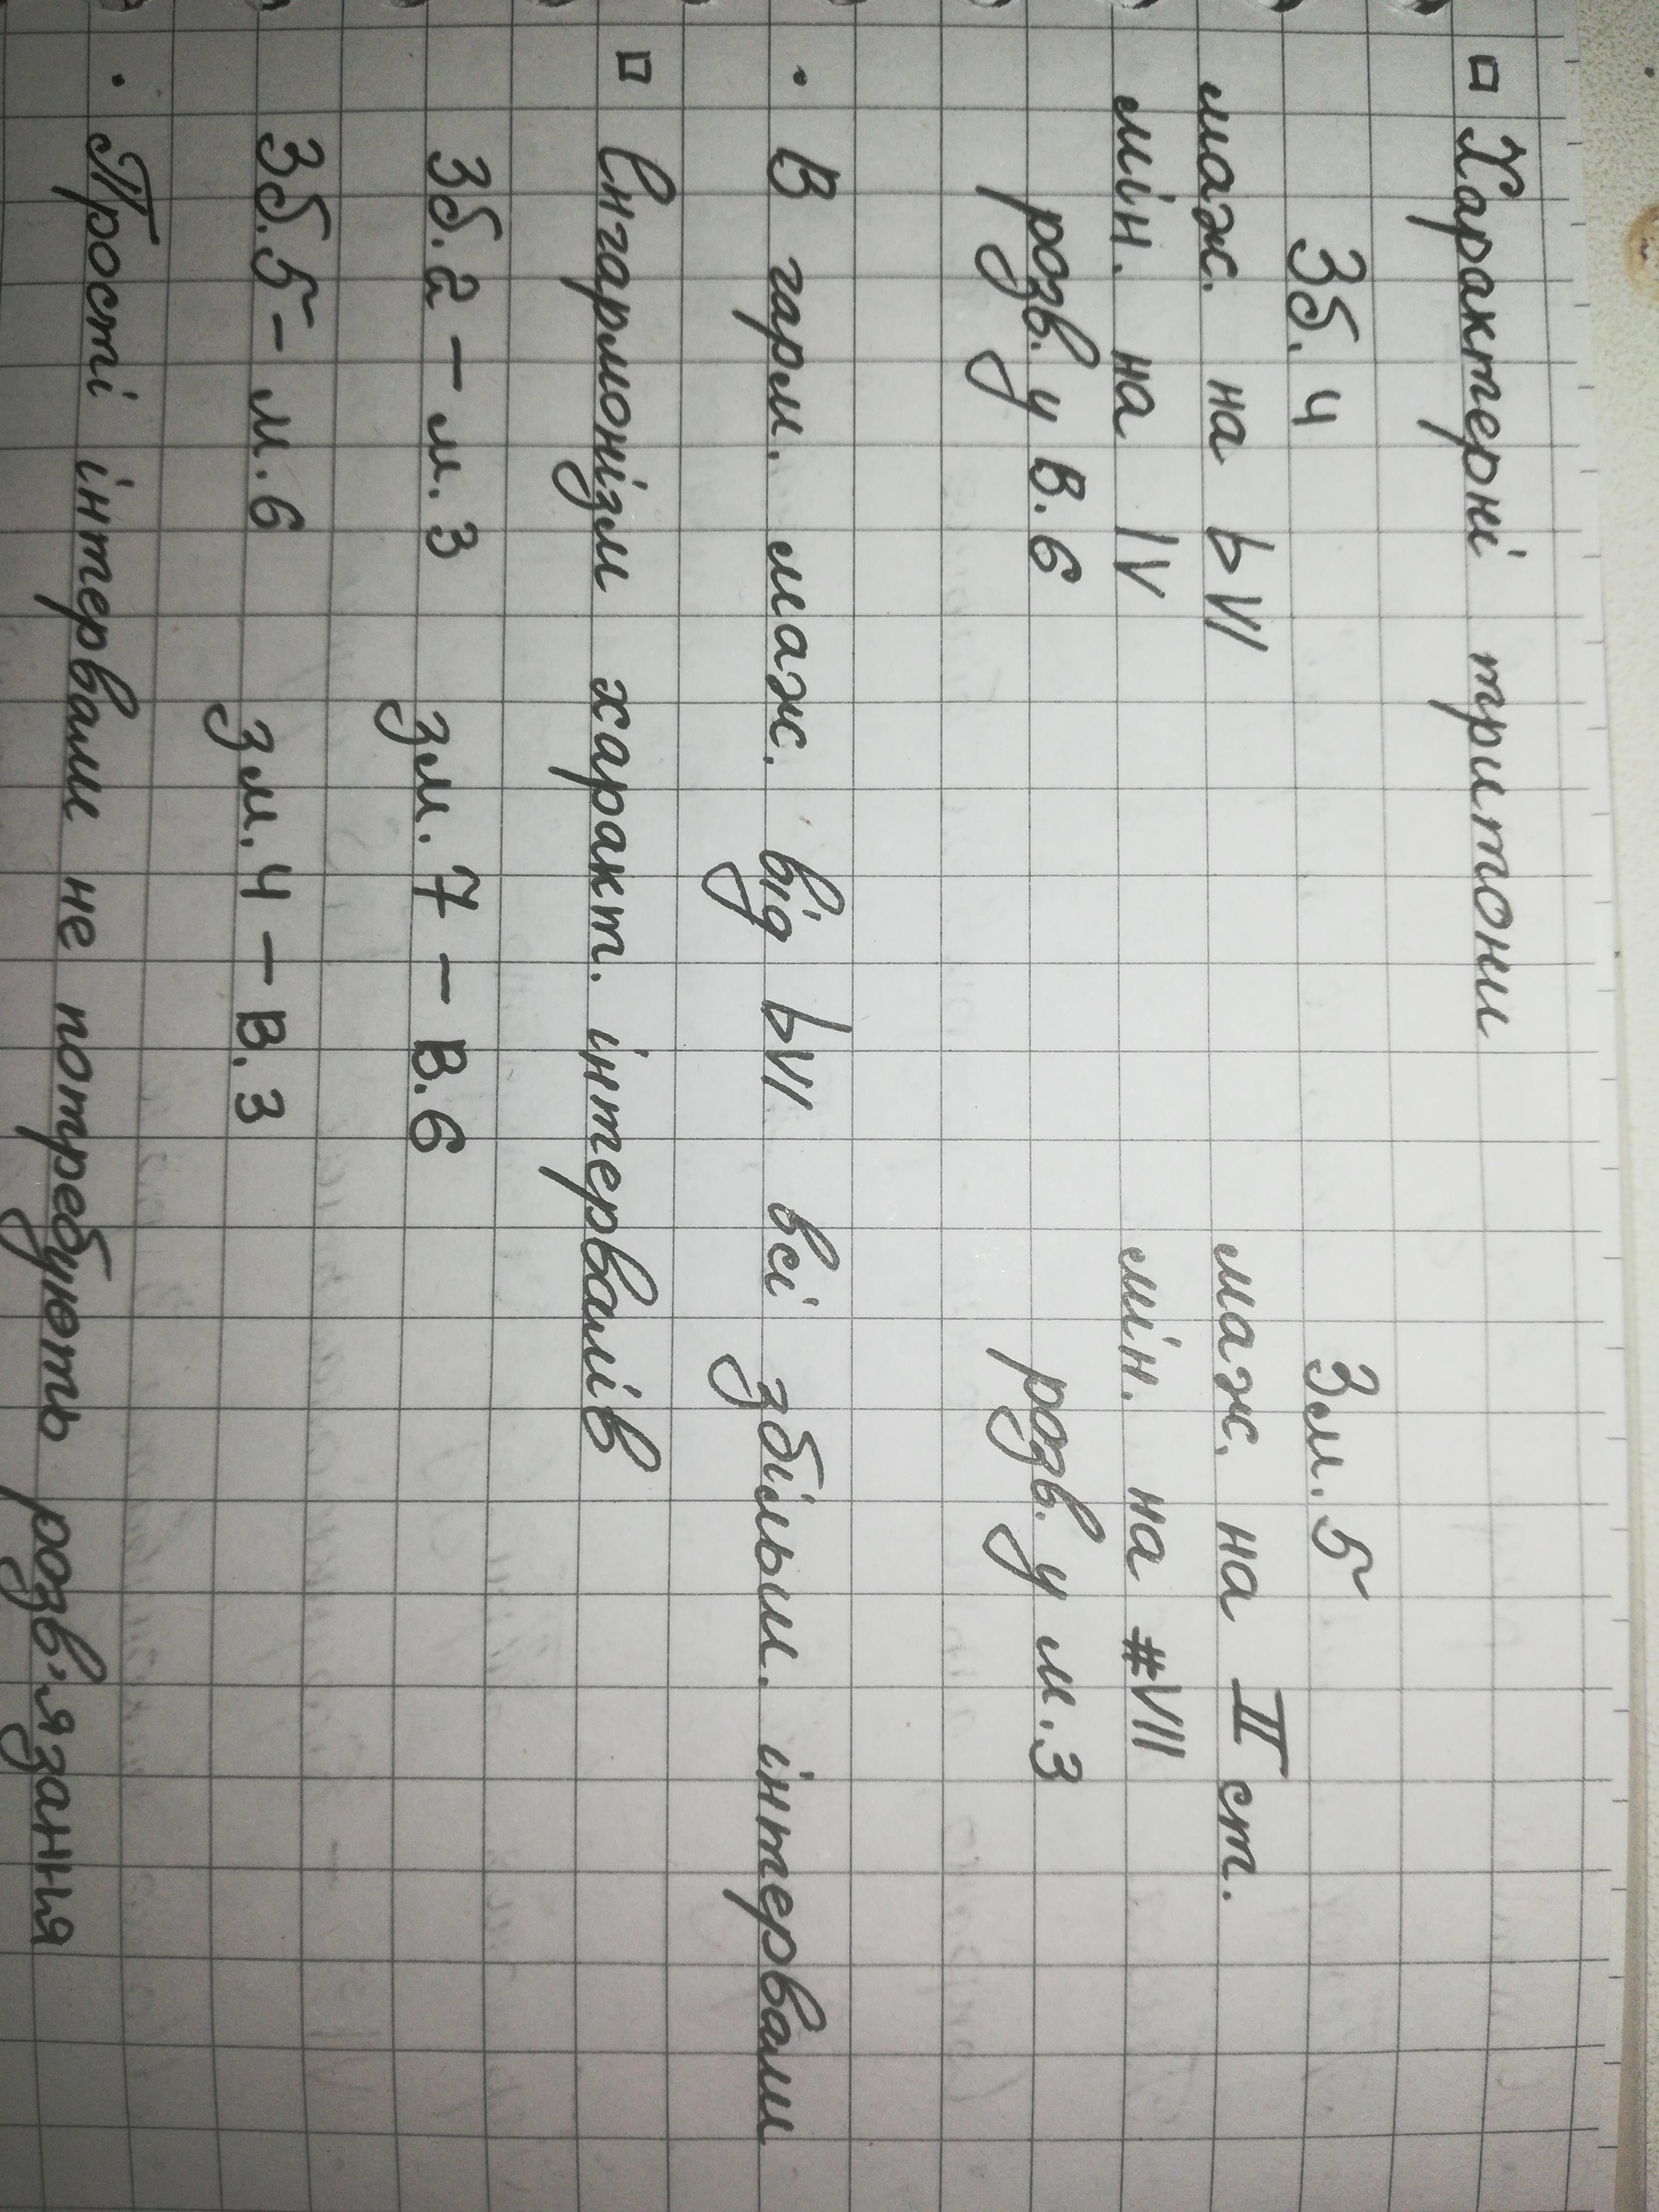 ▫ Характерні тритони
Зб. 4 Зм. 5
маж. на ♭VI маж. на II ст.
мін. на IV мін. на #VII
розв. у В.6 розв. у м.3
· В гарм. маж. від ♭VI всі збільш. інтервали
▫ Енгармонізм характ. інтервалів
Зб.2 – м.3 зм.7 – В.6
Зб.5 – м.6 зм.4 – В.3
· Прості інтервали не потребують розв'язання